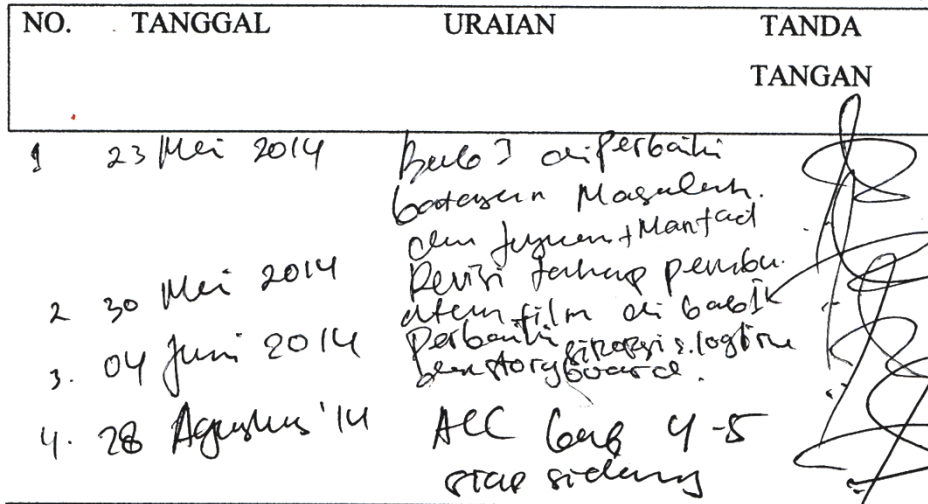 NO. TANGGAL URAIAN TANDA
TANGAN
1 23 Mei 2014 Bab I diperbaiki
batasan Masalah.
dan tujuan + Manfaat
2 30 Mei 2014 Revisi tahap pembu
atan film di bab IV
3. 04 Juni 2014 Perbaiki sinopsis. logline
dan storyboard.
4. 28 Agustus '14 ACC bab 4-5
siap sidang